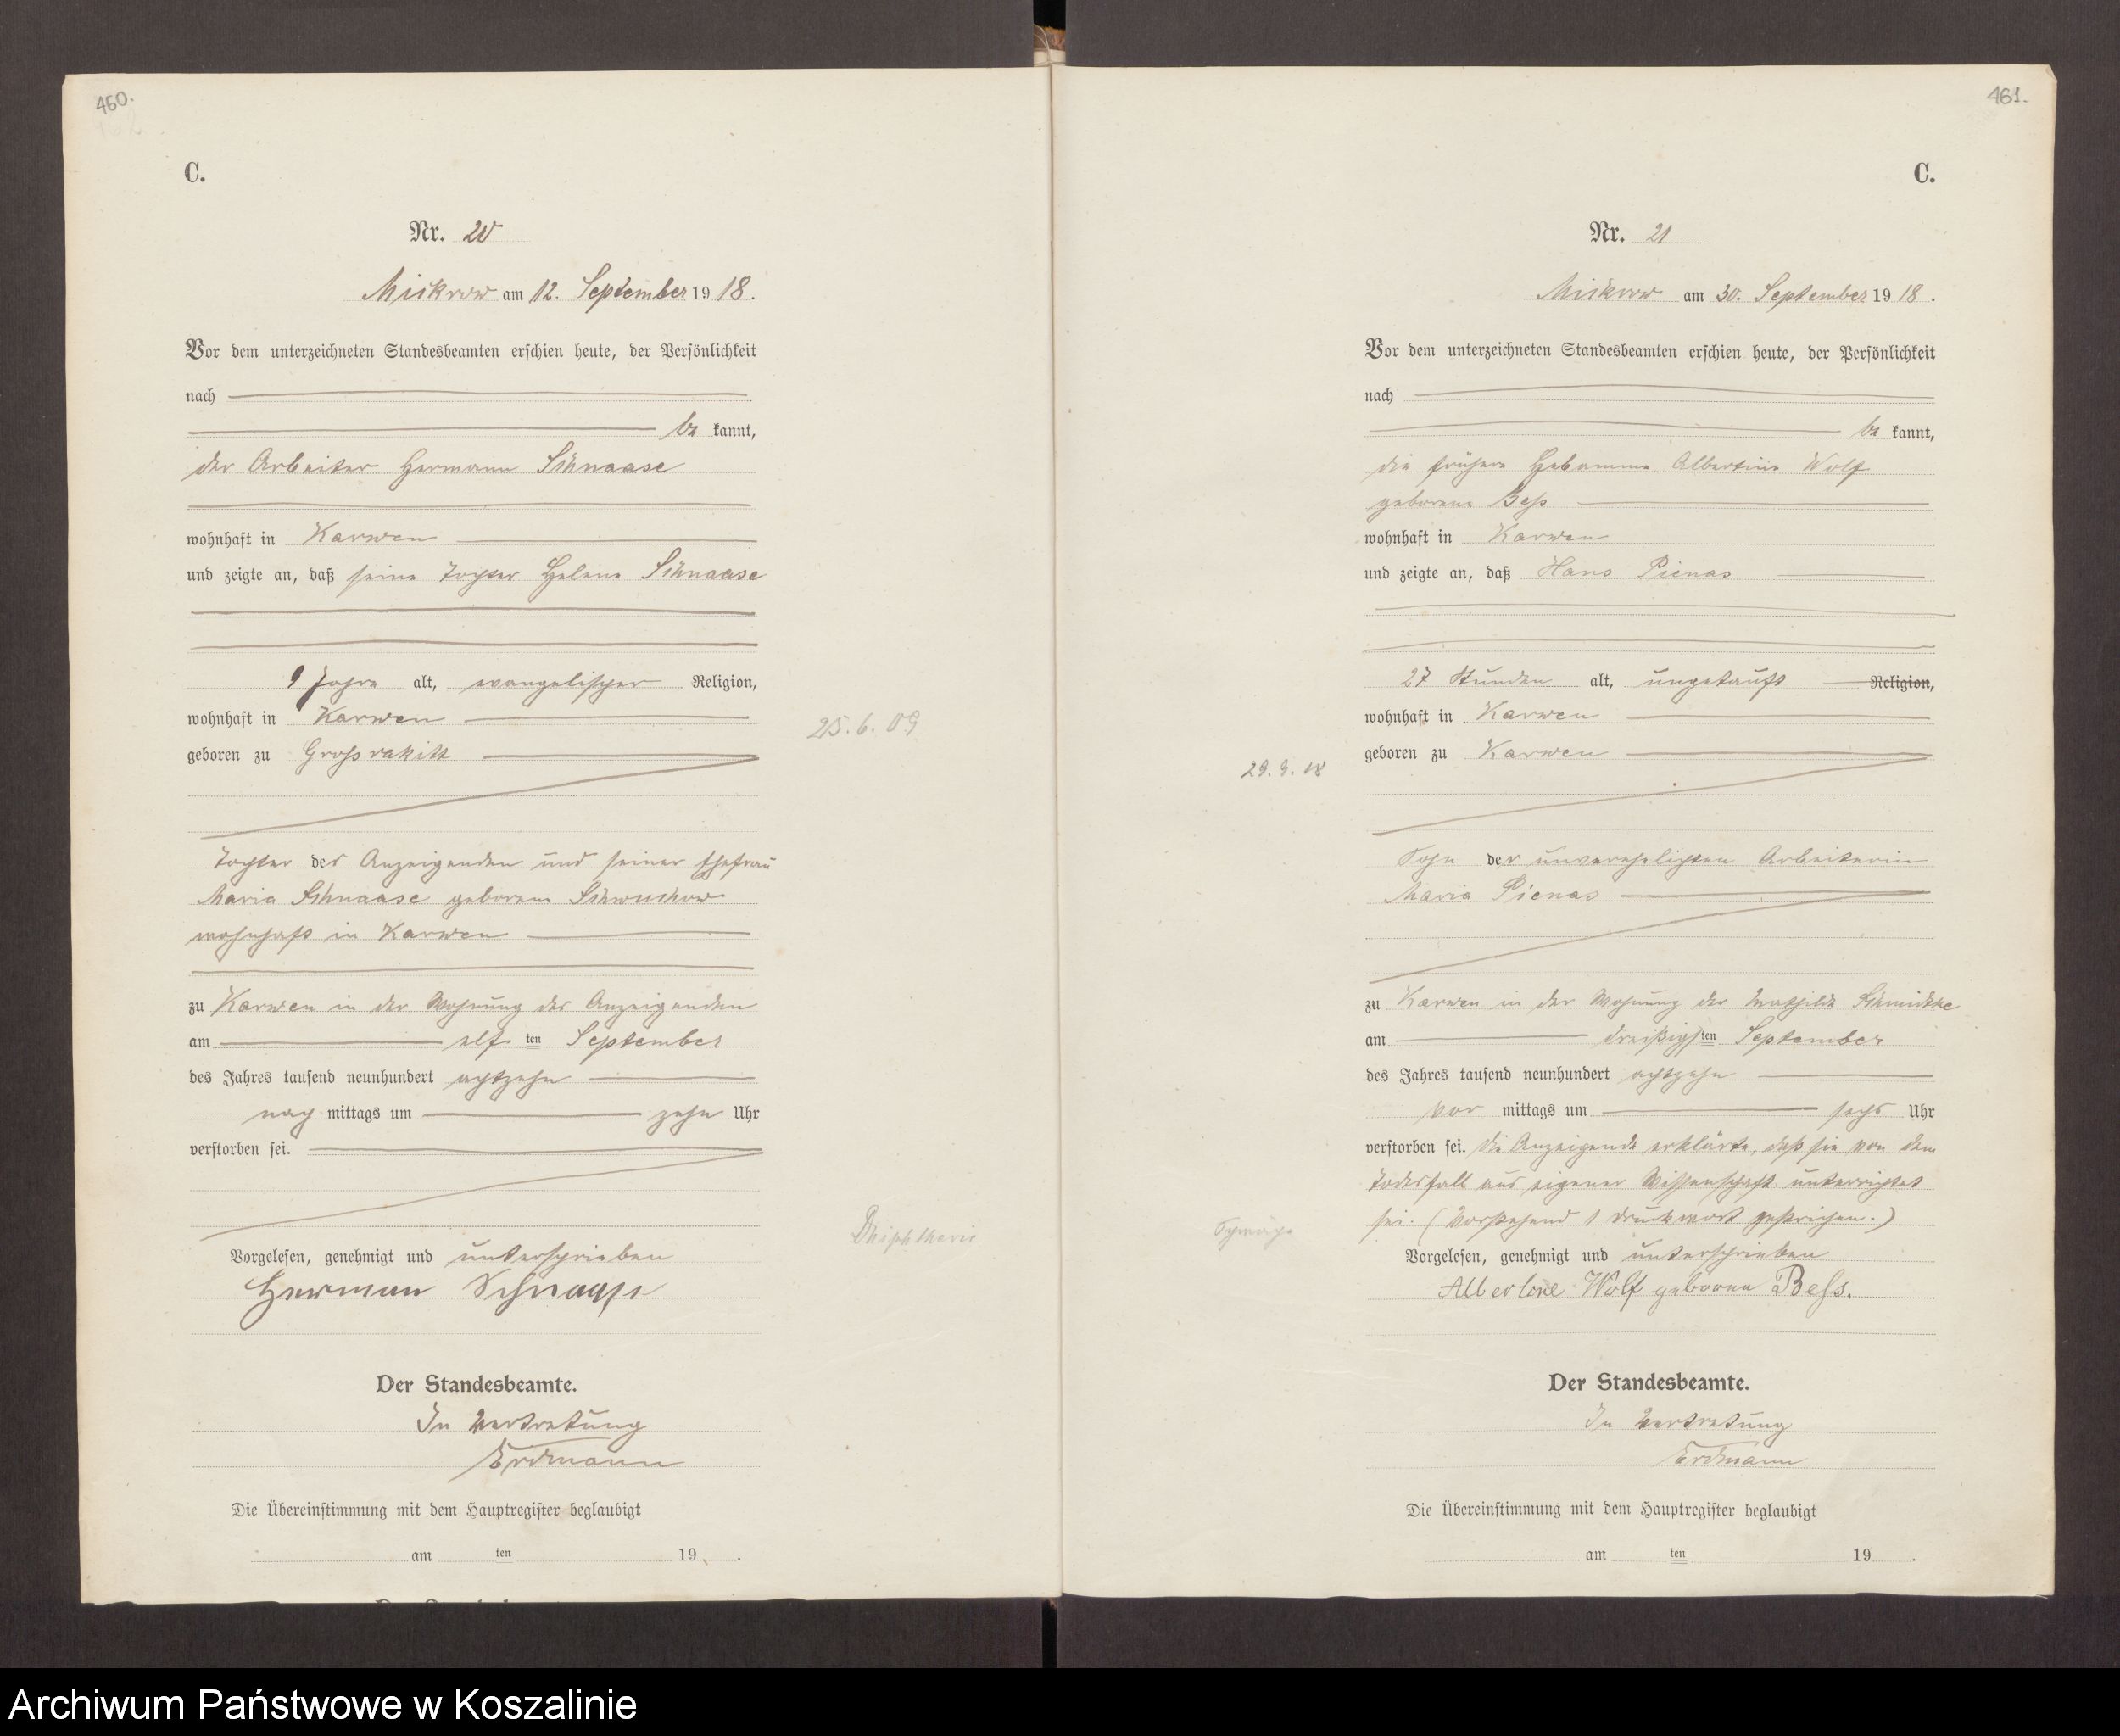 460.
C.
Nr. 20
Mickrow am 12. September 1918.
Vor dem unterzeichneten Standesbeamten erschien heute, der Persönlichkeit
nach
be kannt,
der Arbeiter Hermann Schnaase
wohnhaft in Karwen
und zeigte an, daß seine Tochter Helene Schnaase
9 Jahre alt, evangelischer Religion,
wohnhaft in Karwen
25. 6. 09
geboren zu Großrakitt
Tochter des Anzeigenden und seiner Ehefrau
Maria Schnaase geborene Schwuchow
wohnhaft in Karwen
zu Karwen in der Wohnung des Anzeigenden
am elf ten September
des Jahres tausend neunhundert achtzehn
nach mittags um zehn Uhr
verstorben sei.
Dhiphtherie
Vorgelesen, genehmigt und unterschrieben
Herman Schnaase
Der Standesbeamte.
In Vertretung
Erdmann
Die Übereinstimmung mit dem Hauptregister beglaubigt
am ten 19 .
461.
C.
Nr. 21
Mickrow am 30. September 1918.
Vor dem unterzeichneten Standesbeamten erschien heute, der Persönlichkeit
nach
be kannt,
die frühere Hebamme Albertine Wolf
geborene Beß
wohnhaft in Karwen
und zeigte an, daß Hans Pienas
27 Stunden alt, ungetauft Religion,
wohnhaft in Karwen
geboren zu Karwen
29. 9. 18
Sohn der unverehelichten Arbeiterin
Maria Pienas
zu Karwen in der Wohnung der Mathilde Schmidtke
am dreißigsten September
des Jahres tausend neunhundert achtzehn
vor mittags um sechs Uhr
verstorben sei. Die Anzeigende erklärte, daß sie von dem
Todesfall aus eigener Wissenschaft unterrichtet
sei. (Vorstehend 1 Druckwort gestrichen.)
Schwäche
Vorgelesen, genehmigt und unterschrieben
Albertine Wolf geborene Beß.
Der Standesbeamte.
In Vertretung
Erdmann
Die Übereinstimmung mit dem Hauptregister beglaubigt
am ten 19 .
Archiwum Państwowe w Koszalinie